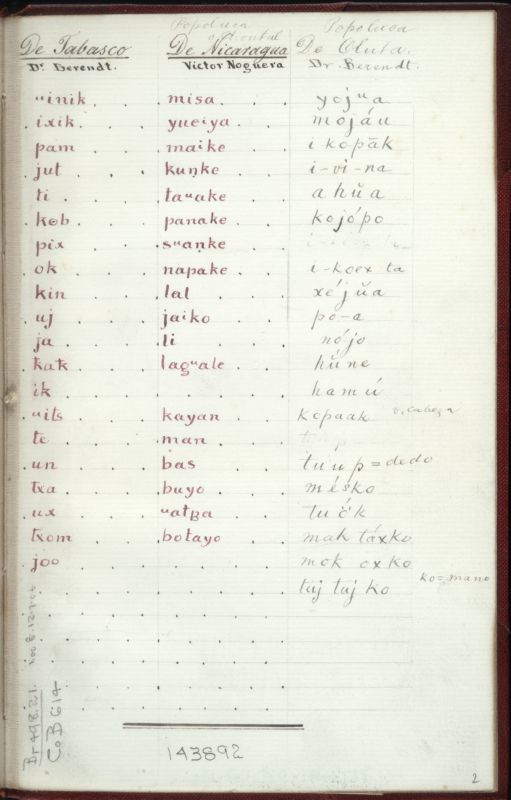 Popoluca Popoluca
De Tabasco De Nicaragua De Oluta.
Dr. Berendt. Victor Noguera Dr. Berendt.
ᵘinik misa yojᵘa
ixik yueiya mojáu
pam maike i kopāk
jut kuņke i-vi-na
ti taᵘake ahŭa
kob panake kojópo
pix sᵘaņke
ok napake i-koex ta
kin lal xéjŭa
uj jaiko po-a
ja li nójo
kak lagᵘale hŭne
ik hamú
ᵘits kayan kopaak v. cabeza
te man
un bas tuup = dedo
txa buyo méśko
ux ᵘatBa tuŏk
txom botayo mak táxko
joo mok oxko
tuj tuj ko ko = mano
143892
Br 498.21
CoB 614
2